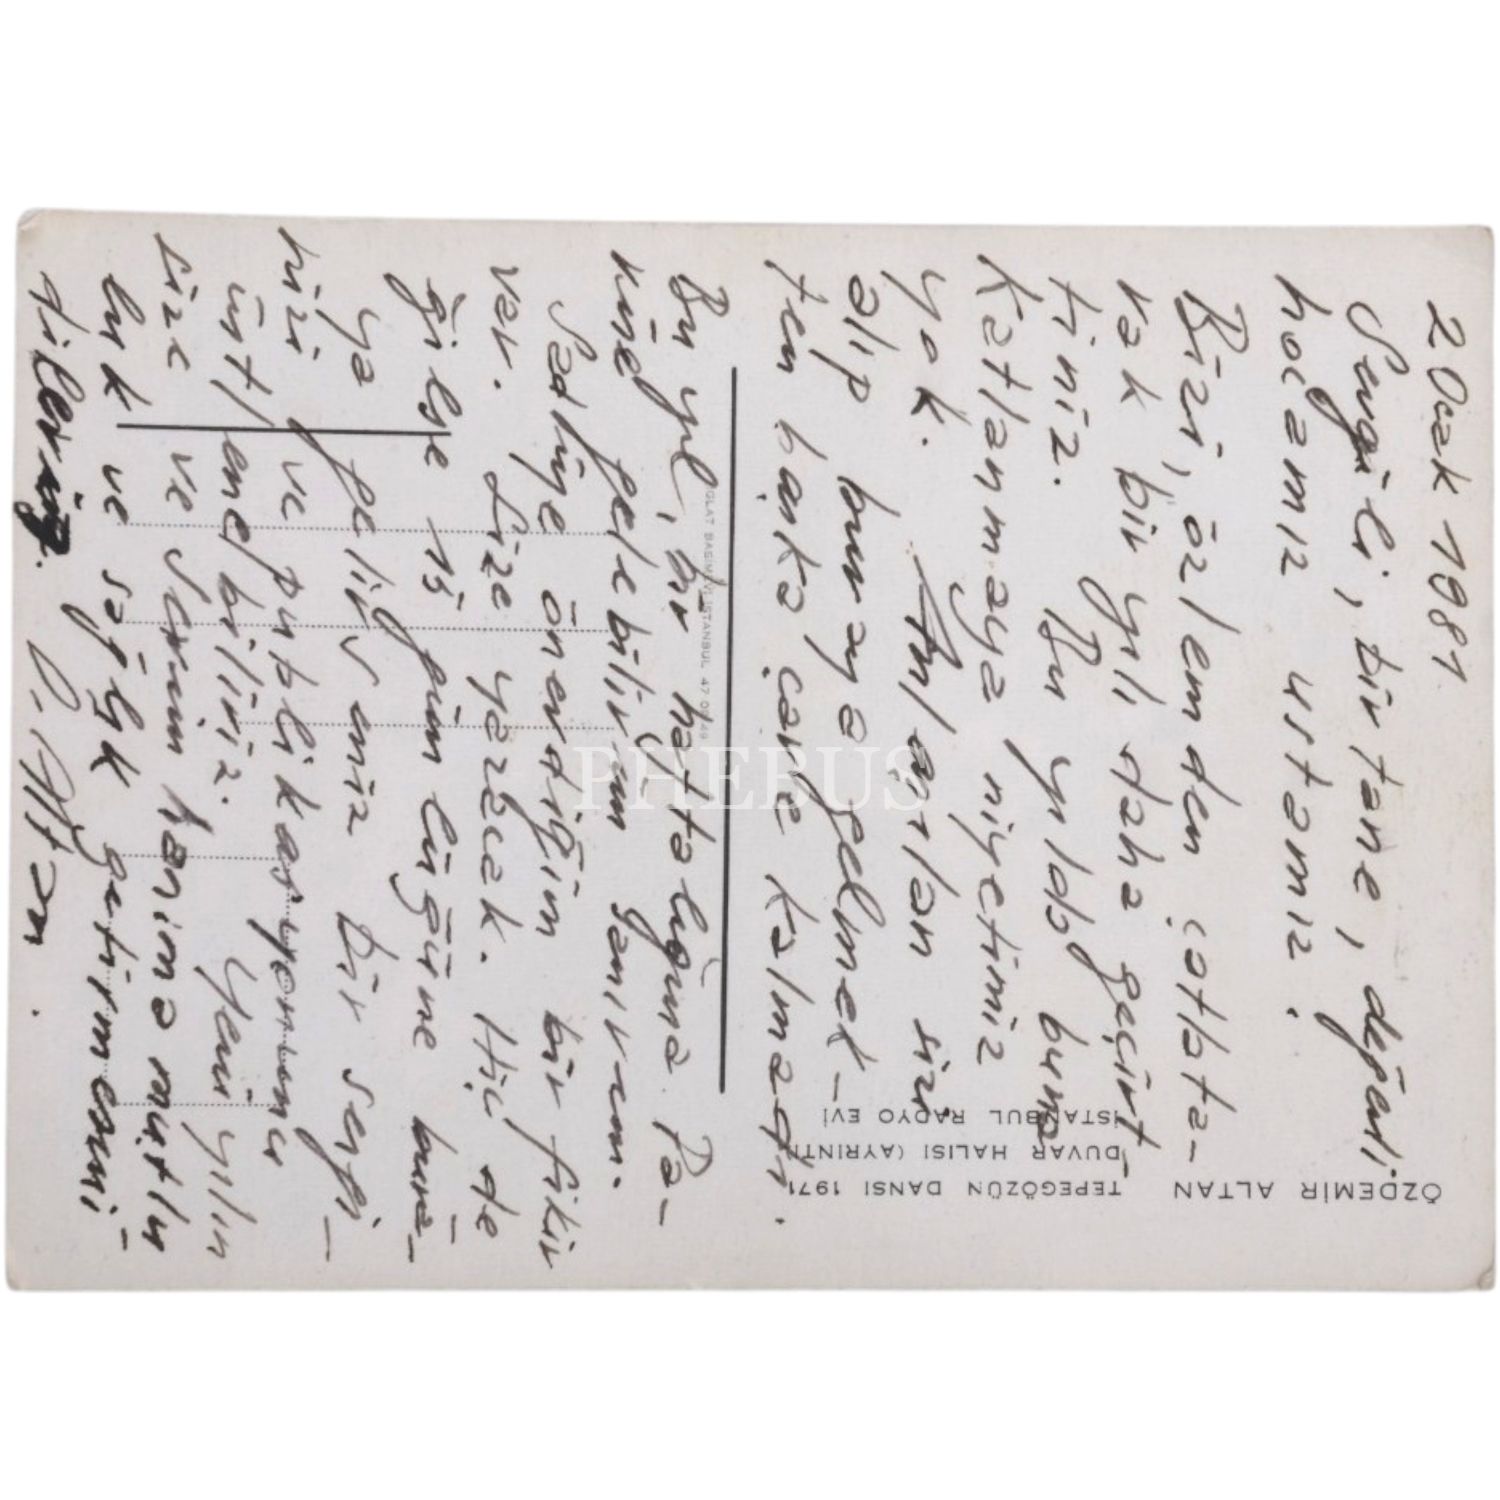 2 Ocak 1981
Sevgili, bir tane, değerli
hocamız ustamız.
Bizi, özlemden çatlata-
rak bir yılı daha geçirt-
tiniz. Bu yılda buna
katlanmaya niyetimiz
yok. Anlaşılan sizi
alıp buraya gelmek-
ten başka çare kalmadı.
Bu yıl, bir hafta lığına Pa-
rise gelebilirim sanırım.
Sadiye önerdiğim bir fikir
var. Size yazacak. Hiç de
ğilse 15 gün lüğüne bura-
ya gelirseniz bir sergi-
nizi ve publikasyonunu
üstlenebiliriz. Yeni yılın
size ve Selim hanıma mutlu
luk ve sağlık getirmesini
dileriz.
Ö. Altan.
ÖZDEMİR ALTAN
TEPEGÖZÜN DANSI 1971
DUVAR HALISI (AYRINTI)
İSTANBUL RADYO EVİ
BASIMEVİ İSTANBUL 47
PHEBUS